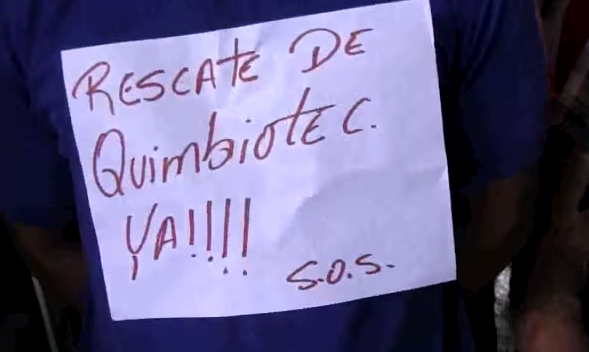 RESCATE DE
QuimbioteC.
YA!!!!
S.O.S.